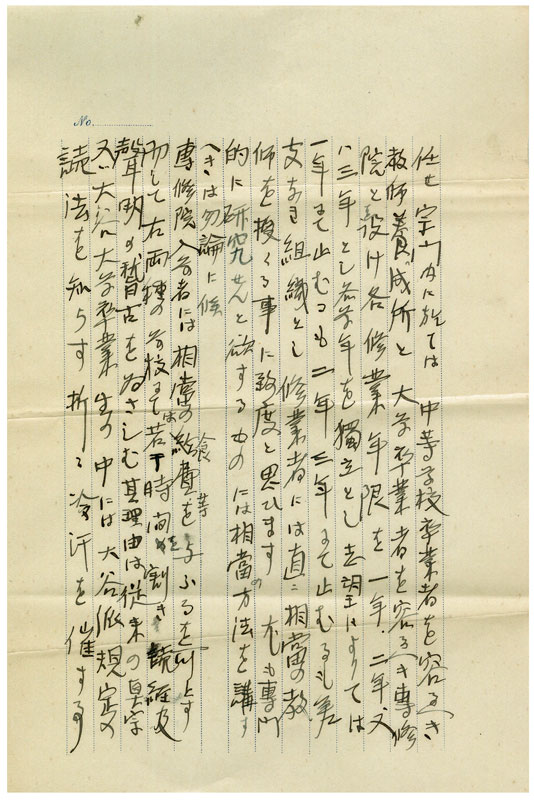 No.
任せ宗門内に於ては 中等学校卒業者を容るべき
教師養成所と 大学卒業者を容るべき専修
院と設け各修業年限を一年二年又
ハ三年とし各学年を獨立とし志望によりては
一年にて止むるも二年三年にて止むるも差
支なき組織とし修業者には直に相當の教
師を授くる事に致度と思ひます 尤も専門
的に研究せんと欲するものには相當の方法を講ず
べきは勿論に候
専修院入学者には相當の給費飡等を与ふるを可とす
而して右両種の学校にては若干時間を割き読経及
聲明の稽古をなさしむ其理由は従来の真宗
又ハ大谷大学卒業生の中には大谷派規定の
読法を知らす折々冷汗を催する